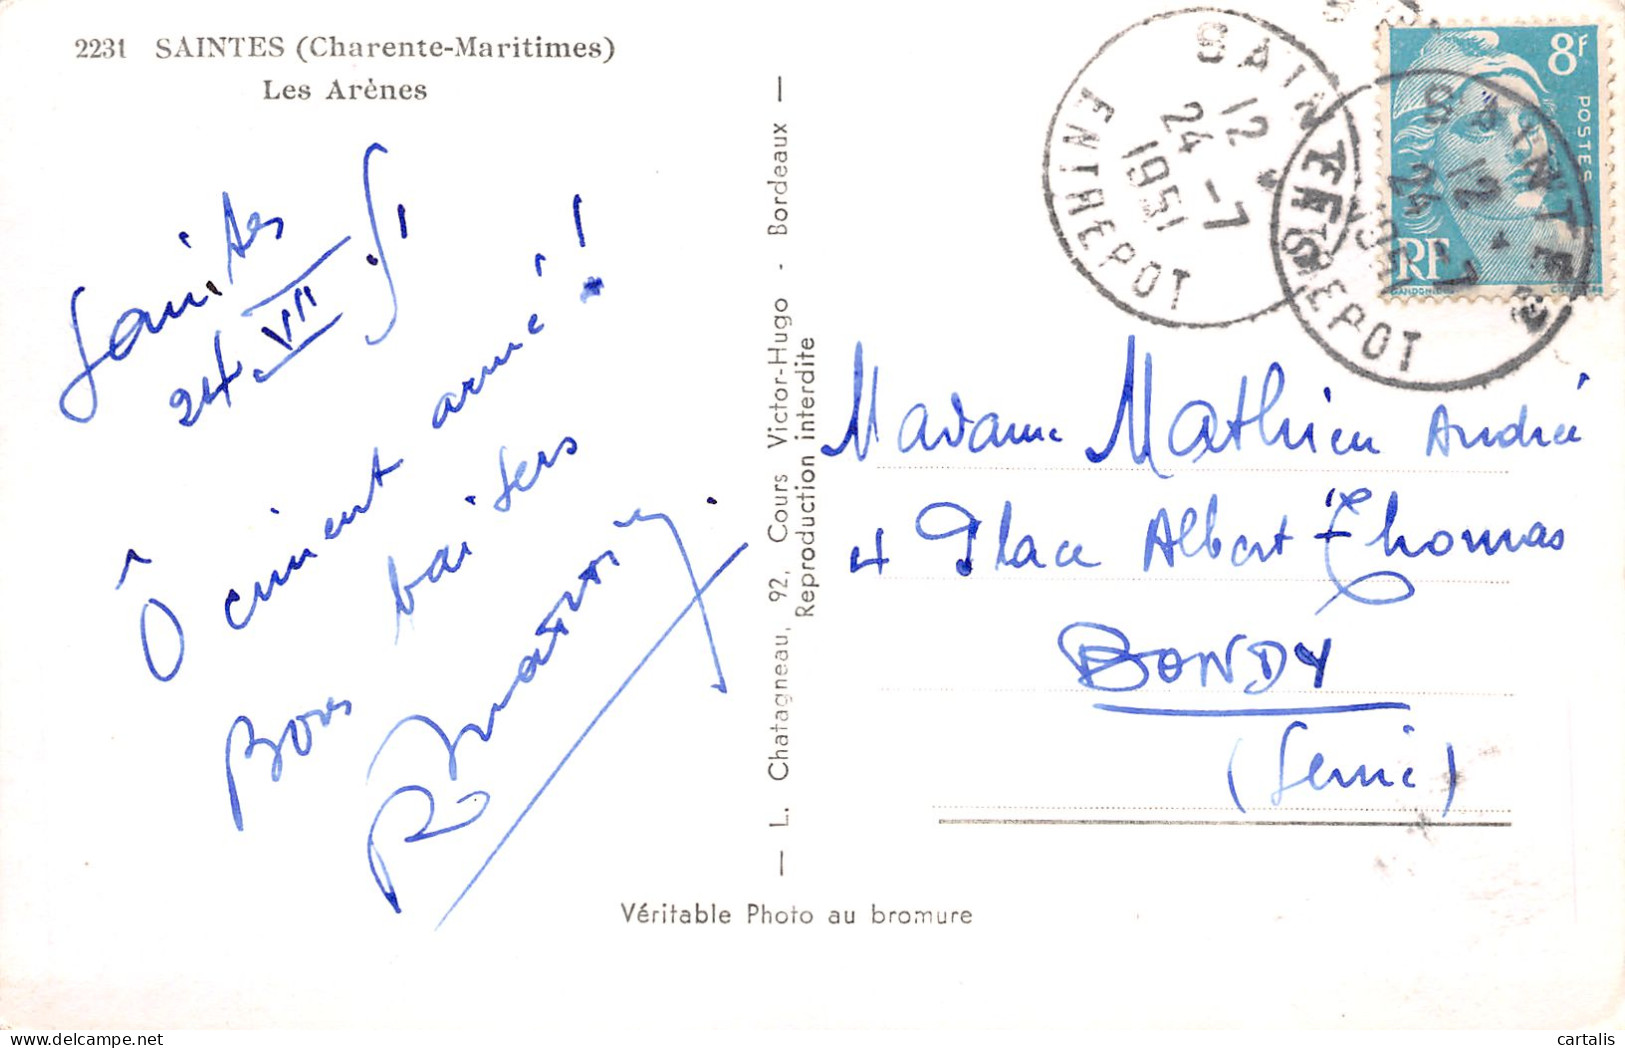 2231 SAINTES (Charente-Maritimes)
Les Arènes
Saintes
24 VII 51
Ô ciment armé !
Bons baisers
L. Chatagneau, 92, Cours Victor-Hugo - Bordeaux
Reproduction interdite
Véritable Photo au bromure
SAINTES
12
24-7
1951
ENTREPOT
SAINTES
12
24-7
1951
ENTREPOT
8F
POSTES
RF
Madame Mathieu Andrée
4 Place Albert Thomas
BONDY
(Seine)
cartalis